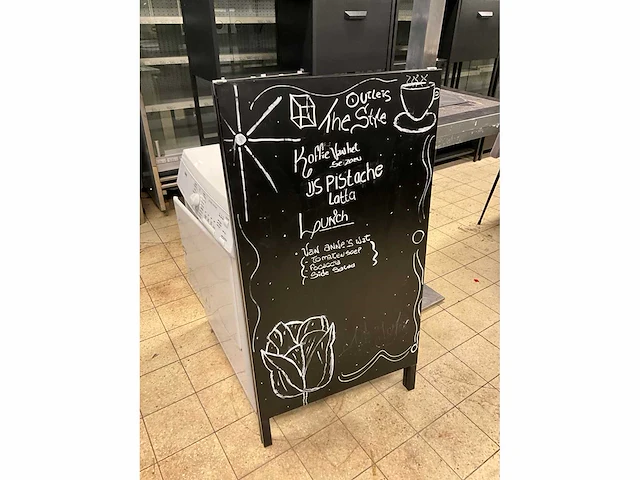 The Style
Koffie Van het
Seizoen
IJS Pistache
Latta
Lunch
Van Anne's Wat
- Tomatensoep
- Focaccia
- Side Salad